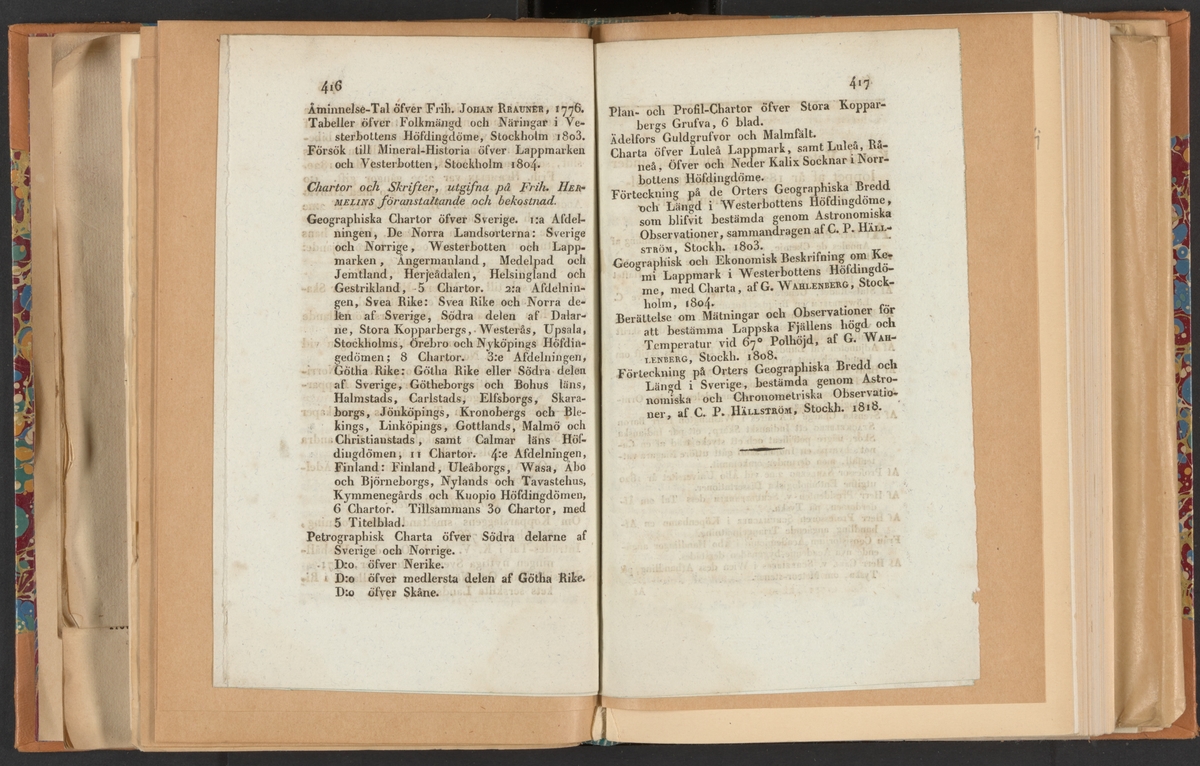 416
Åminnelse-Tal öfver Frih. JOHAN RRAUNER, 1776.
Tabeller öfver Folkmängd och Näringar i Ve-
sterbottens Höfdingdöme, Stockholm 1803.
Försök till Mineral-Historia öfver Lappmarken
och Vesterbotten, Stockholm 1804.
Chartor och Skrifter, utgifna på Frih. HER-
MELINS föranstaltande och bekostnad.
Geographiska Chartor öfver Sverige. 1:a Afdel-
ningen, De Norra Landsorterna: Sverige
och Norrige, Westerbotten och Lapp-
marken, Ångermanland, Medelpad och
Jemtland, Herjeådalen, Helsingland och
Gestrikland, 5 Chartor. 2:a Afdelnin-
gen, Svea Rike: Svea Rike och Norra de-
len af Sverige, Södra delen af Dalar-
ne, Stora Kopparbergs, Westerås, Upsala,
Stockholms, Örebro och Nyköpings Höfdin-
gedömen; 8 Chartor. 3:e Afdelningen,
Götha Rike: Götha Rike eller Södra delen
af Sverige, Götheborgs och Bohus läns,
Halmstads, Carlstads, Elfsborgs, Skara-
borgs, Jönköpings, Kronobergs och Ble-
kings, Linköpings, Gottlands, Malmö och
Christianstads, samt Calmar läns Höf-
dingdömen, 11 Chartor. 4:e Afdelningen,
Finland: Finland, Uleåborgs, Wasa, Åbo
och Björneborgs, Nylands och Tavastehus,
Kymmenegårds och Kuopio Höfdingdömen,
6 Chartor. Tillsammans 30 Chartor, med
5 Titelblad.
Petrographisk Charta öfver Södra delarne af
Sverige och Norrige.
D:o öfver Nerike.
D:o öfver medlersta delen af Götha Rike.
D:o öfver Skåne.
417
Plan- och Profil-Chartor öfver Stora Koppar-
bergs Grufva, 6 blad.
Ädelfors Guldgrufvor och Malmfält.
Charta öfver Luleå Lappmark, samt Luleå, Rå-
neå, Öfver och Neder Kalix Socknar i Norr-
bottens Höfdingdöme.
Förteckning på de Orters Geographiska Bredd
och Längd i Westerbottens Höfdingdöme,
som blifvit bestämda genom Astronomiska
Observationer, sammandragen af C. P. HÄLL-
STRÖM, Stockh. 1803.
Geographisk och Ekonomisk Beskrifning om Ke-
mi Lappmark i Westerbottens Höfdingdö-
me, med Charta, af G. WAHLENBERG, Stock-
holm, 1804.
Berättelse om Mätningar och Observationer för
att bestämma Lappska Fjällens högd och
Temperatur vid 67° Polhöjd, af G. WAH-
LENBERG, Stockh. 1808.
Förteckning på Orters Geographiska Bredd och
Längd i Sverige, bestämda genom Astro-
nomiska och Chronometriska Observatio-
ner, af C. P. HÄLLSTRÖM, Stockh. 1818.